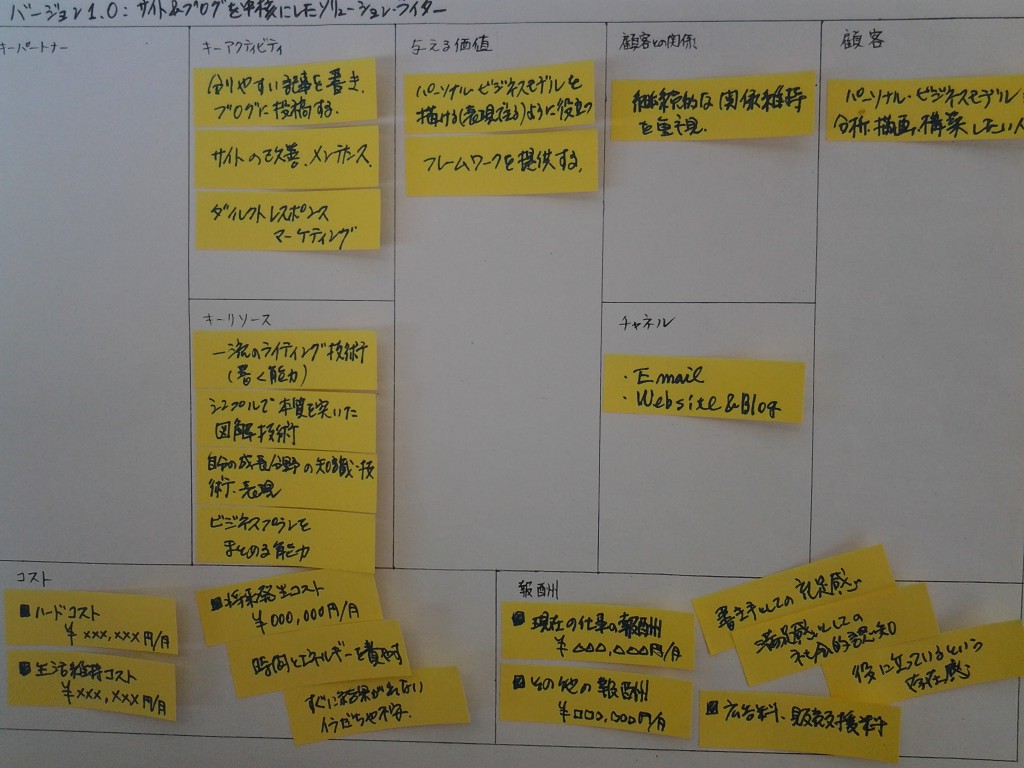 バージョン1.0：サイト&ブログを中核にしたソリューション・ライター
キーパートナー
キーアクティビティ
分りやすい記事を書き、
ブログに投稿する。
サイトの改善、メンテナンス.
ダイレクトレスポンス
マーケティング
キーリソース
一流のライティング技術
(書く能力)
シンプルで本質を突いた
図解技術
自分の成長分野の知識・技
術・表現
ビジネスプランを
まとめる能力
与える価値
パーソナル・ビジネスモデルを
描ける(表現できる)ように役立つ
フレームワークを提供する。
顧客との関係
継続的な関係維持
を重視.
チャネル
・Email
・Website&Blog
顧客
パーソナル・ビジネスモデル
分析、描画、構築したい人
コスト
■ハードコスト
￥×××,×××円/月
■生活維持コスト
￥×××,×××円/月
■将来発生コスト
￥000,000円/月
時間とエネルギーを費す
すぐに結果が出ない
イラだちや不安.
報酬
■現在の仕事の報酬
￥△△△,△△△円/月
■その他の報酬
￥□□□,□□□円/月
書き手としての充足感
満足感としての
社会的認知
役に立っているという
存在感
■広告料、販売支援料